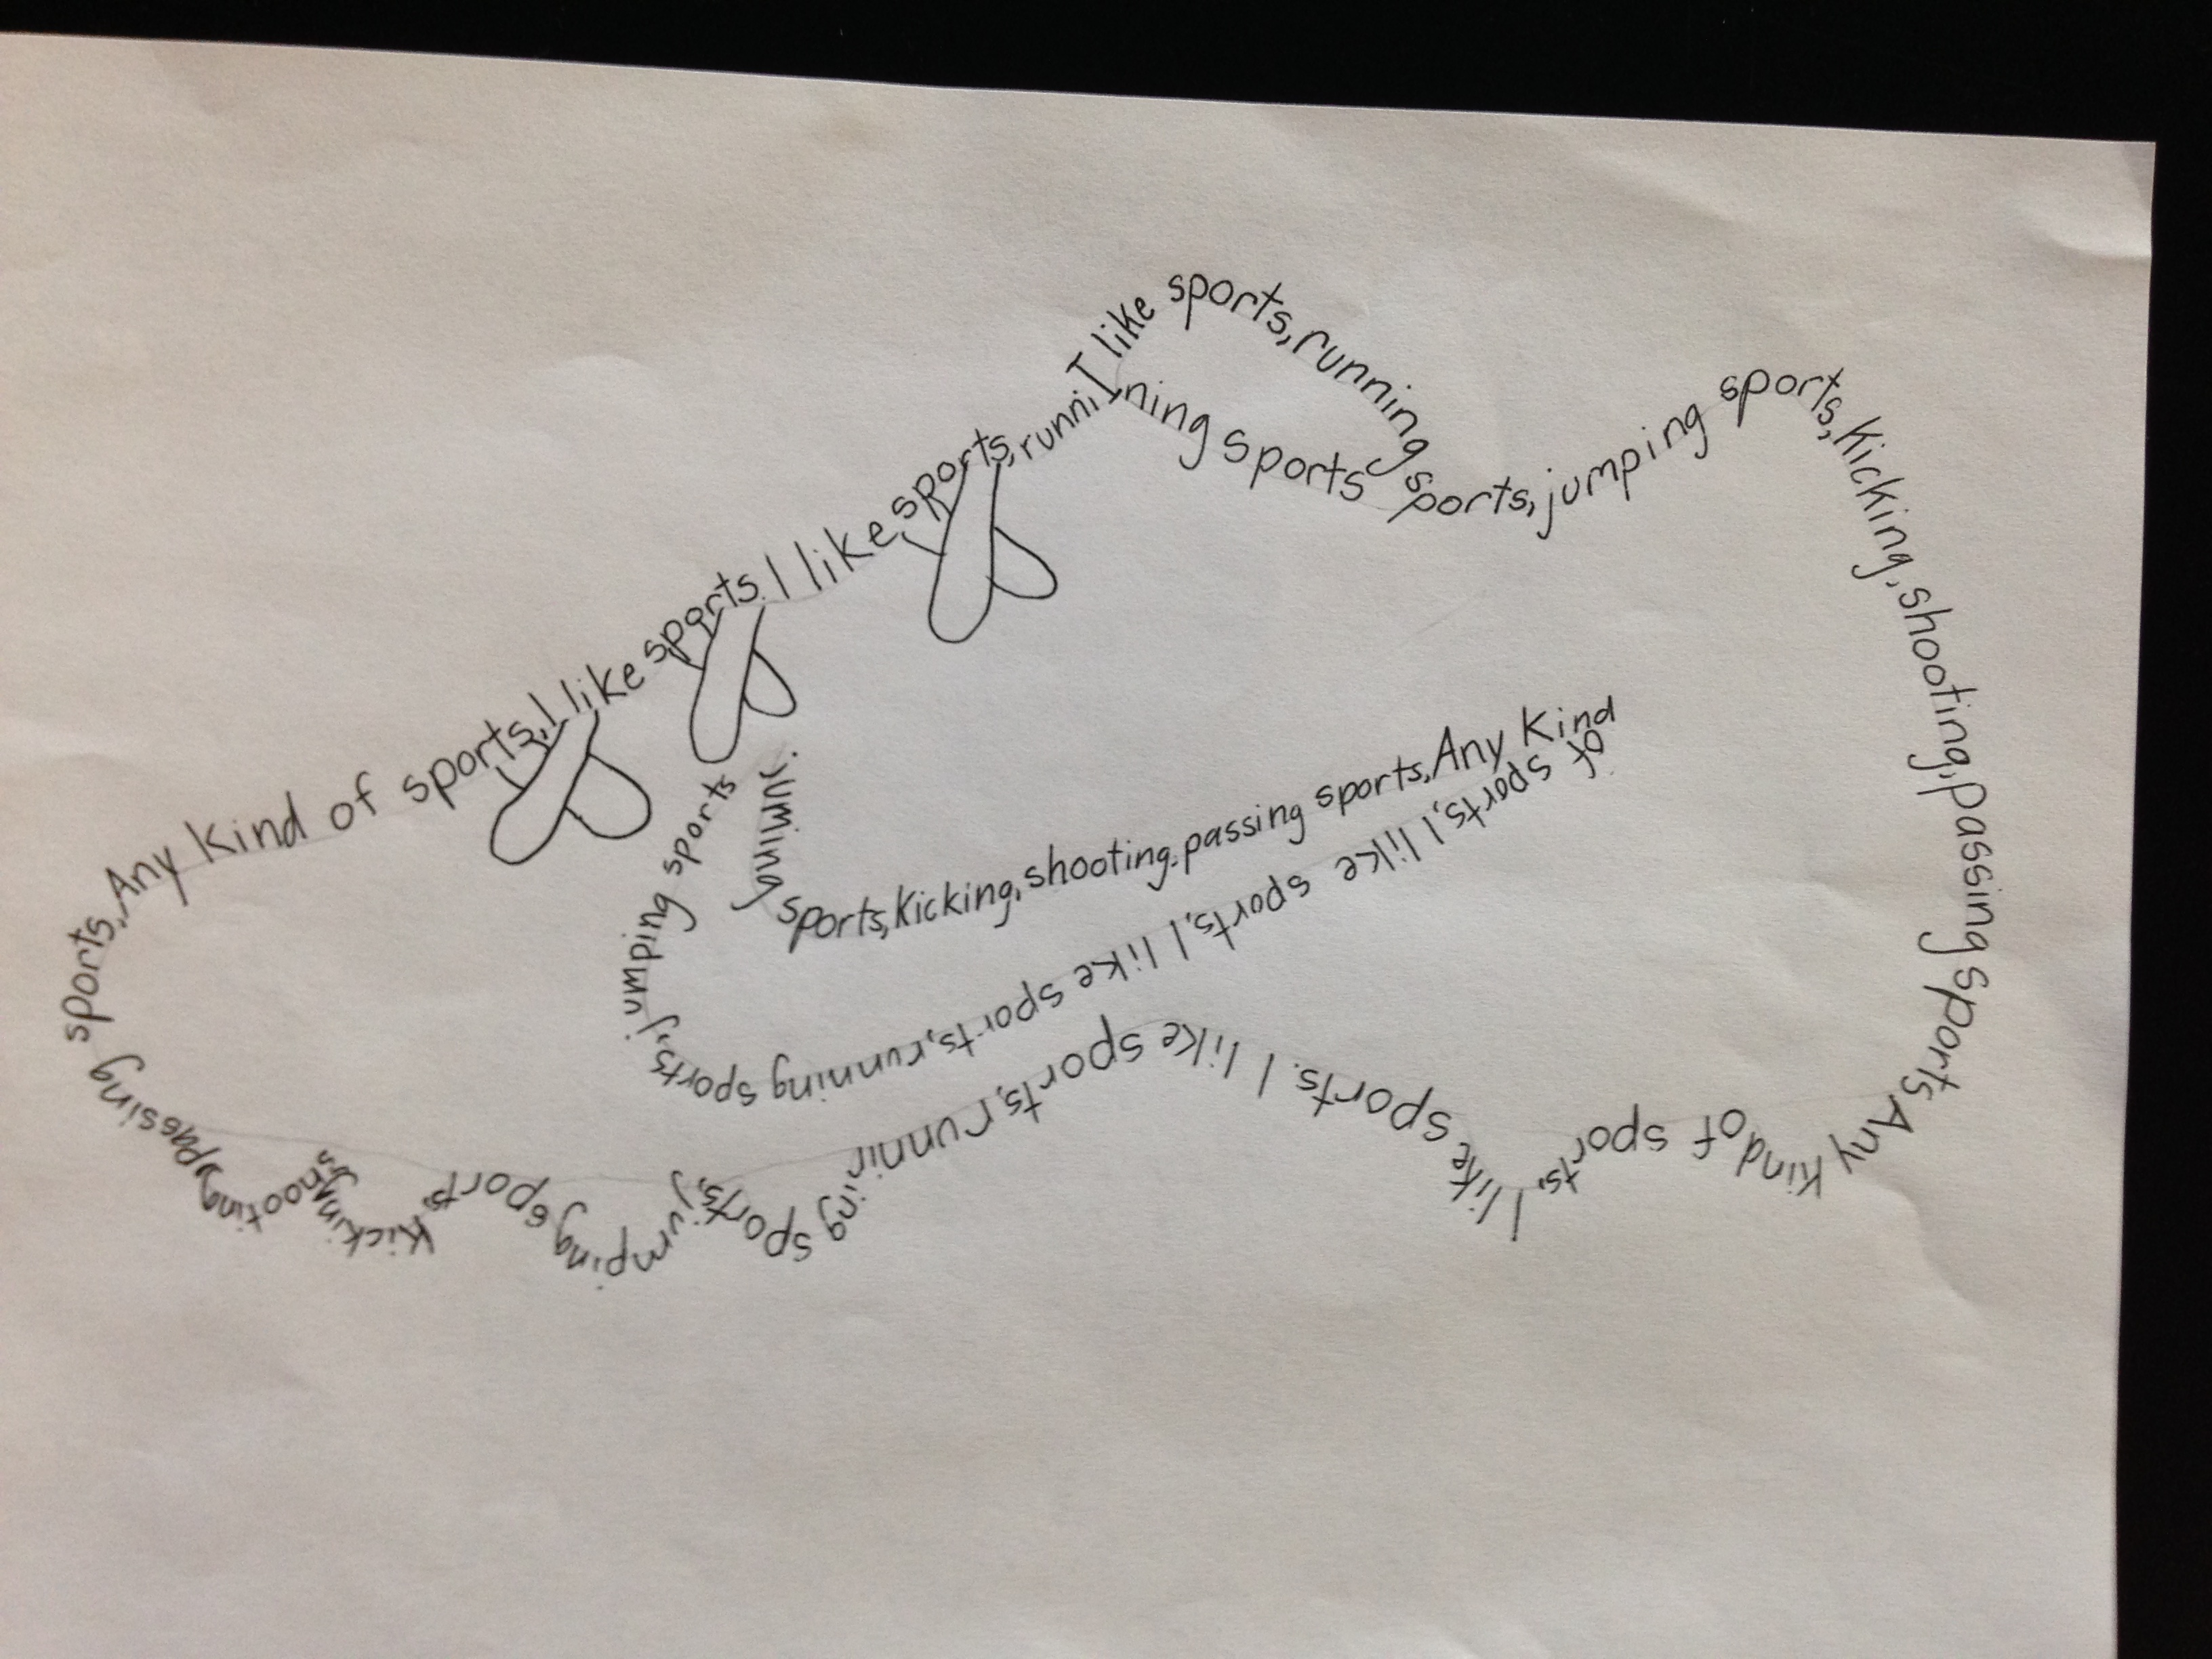 I like sports, running sports, jumping sports, Kicking, shooting, passing sports Any Kind of sports, I like sports. I like sports, running sports, jumping sports Kicking, shooting passing sports, Any Kind of sports, I like sports. I like sports, runni
ning sports
juming sports, Kicking, shooting. passing sports, Any Kind
of sports, I like sports, I like sports, running sports, jumping sports